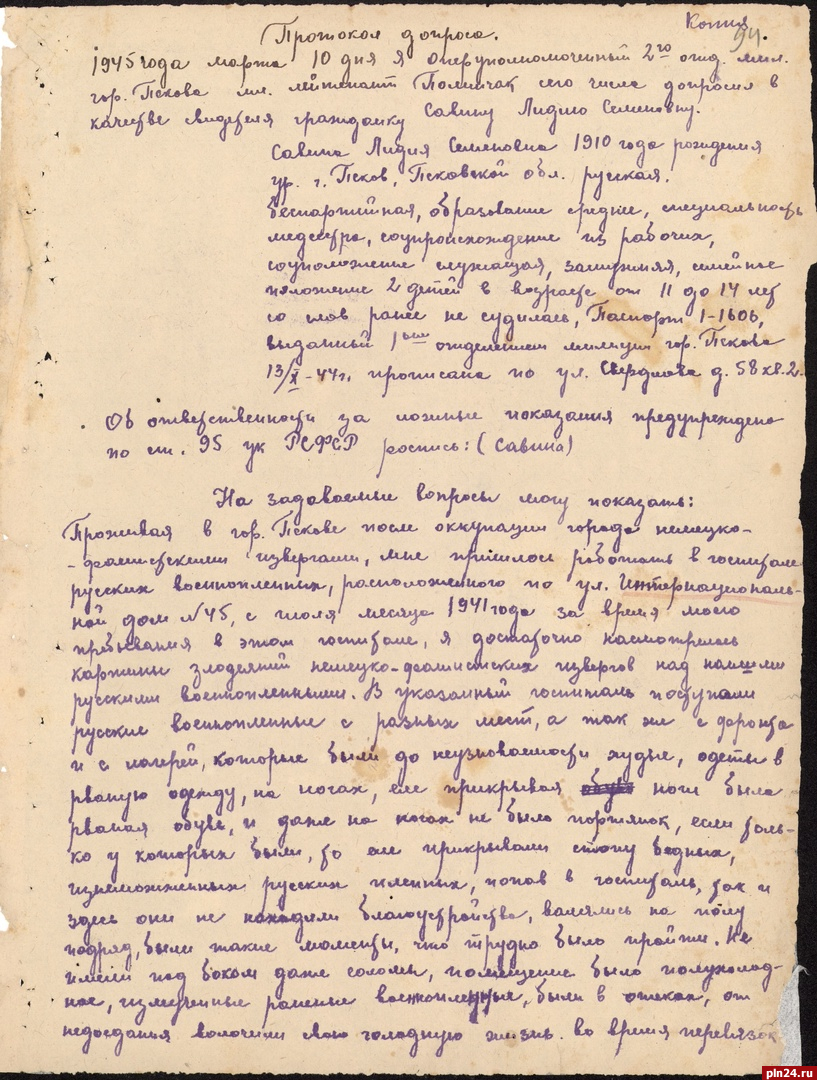 Копия
94.
Протокол допроса.
1945 года марта 10 дня я оперуполномоченный 2го отд. мил.
гор. Пскова мл. лейтенант сего числа допросил в
качестве свидетеля гражданку Савину Лидию Семеновну.
Савина Лидия Семеновна 1910 года рождения
ур. г. Псков, Псковской обл. русская.
беспартийная, образование средне, специальность
медсестра, соцпроисхождение из рабочих,
соцположение служащая, замужняя, семейное
положение 2 детей в возрасте от 11 до 14 лет
со слов ранее не судилась, Паспорт 1-1606,
выданный 1ым отделением милиции гор. Пскова
13/X-44г. прописана по ул. Свердлова д. 58 кв. 2.
Об ответственности за ложные показания предупреждена
по ст. 95 ук РСФСР роспись: (Савина)
На задаваемые вопросы могу показать:
Проживая в гор. Пскове после оккупации города немецко-
-фашистскими извергами, мне пришлось работать в госпитале
русских военнопленных, расположенного по ул. Интернациональ-
ной дом №45, с июля месяца 1941 года за время моего
пребывания в этом госпитале, я достаточно насмотрелась
картины злодеяний немецко-фашистских извергов над нашими
русскими военнопленными. В указанный госпиталь поступали
русские военнопленные с разных мест, а так же с фронта
и с лагерей, которые были до неузноваемости худые, одеты в
рваную одежду, на ногах, еле прикрывая ноги была
рваная обувь, и даже на ногах не было портянок, если толь-
ко у которых были, то еле прикрывали стопу бедных,
изнеможженных русских пленных, попав в госпиталь, так и
здесь они не находили благоустройства, валялись на полу
подряд, были такие моменты, что трудно было пройти. Не
имели под боком даже соломы, помещение было полухолод-
ное, измученные раненые военнопленные, были в отеках, от
недоеданья волочили свою голодную жизнь. во время перевязок
pln24.ru